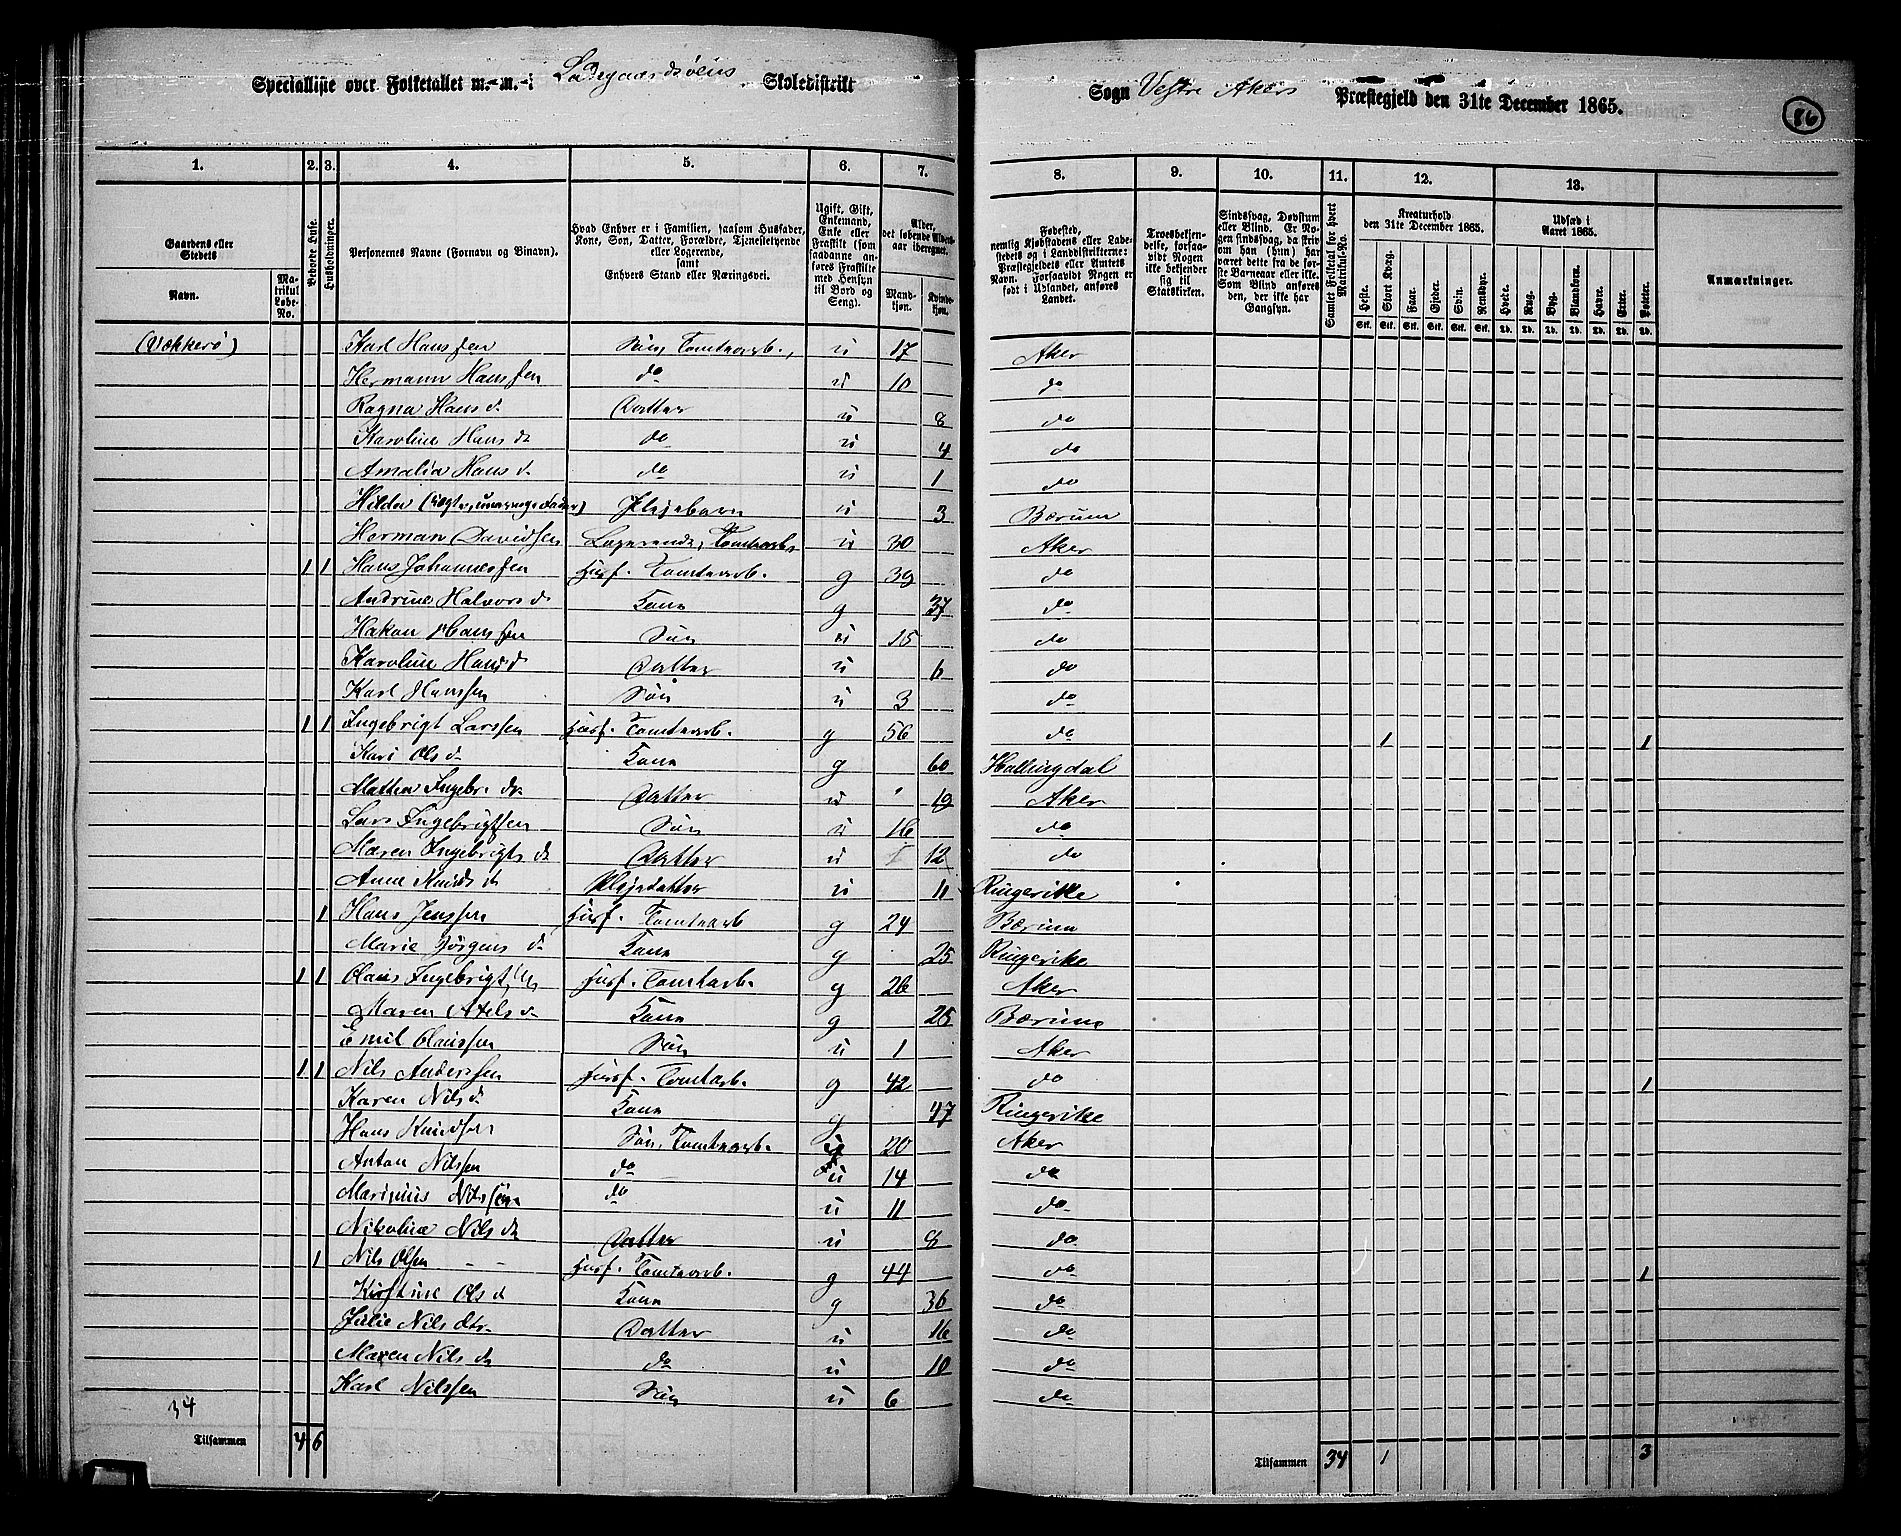 Specialliste over Folketallet m.-m.-i Ladegaardsøens Skoledistrikt
Sogn Vestre Akers Præstegjeld den 31te December 1865.
86
1. 2. 3. 4. 5. 6. 7. 8. 9. 10. 11. 12. 13.
Gaardens eller Stedets
Navn.
Matrikul Løbe-No.
Beboede Huse.
Husholdninger.
Personernes Navne (Fornavn og Binavn).
Hvad Enhver er i Familien, saasom Husfader, Kone, Søn, Datter, Forældre, Tjenestetyende eller Logerende, samt Enhvers Stand eller Næringsvei.
Ugift, Gift, Enkemand, Enke eller Fraskilt (som saadanne anføres Fraskilte med Hensyn til Bord og Seng).
Alder, det løbende Aldersaar iberegnet.
Mandkjøn.
Kvindekjøn.
Fødested, nemlig Kjøbstadens eller Ladestedets og i Landdistrikterne: Præstegjeldets eller Amtets Navn. Forsaavidt Nogen er født i Udlandet, anføres Landet.
Troesbekjendelse, forsaavidt Nogen ikke bekjender sig til Statskirken.
Sindssvag, Døvstum eller Blind. Er Nogen sindssvag, da skrives om han (hun) har været dette fra de første Barneaar eller ikke. Som Blind anføres den, der ikke har Gangsyn.
Samlet Folketal for hvert Matrikul-No.
Kreaturhold den 31te December 1865.
Heste. Stort Kvæg. Faar. Gjeder. Svin. Rensdyr.
Stk. Stk. Stk. Stk. Stk. Stk.
Udsæd i Aaret 1865.
Hvede. Rug. Byg. Blandkorn. Havre. Erter. Poteter.
Td. Td. Td. Td. Td. Td. Td.
Anmærkninger.
(Vækkerø) Karl Hanssen Søn, Tomtearb., u 17 Aker
Hermann Hanssen do u 10 do
Ragna Hans d. Datter u 8 do
Karoline Hans dr do u 4 do
Amalia Hans d. do u 1 do
Hilda Plejebarn u 3 Bærum
Herman Davidsen Logerende, Tomtearb u 30 Aker
1 1 Hans Johannessen Husf. Tomtearb. g 39 do
Andrine Halvors d. Kone g 37 do
Hakon Hanssen Søn u 15 do
Karoline Hans d Datter u 6 do
Karl Hanssen Søn u 3 do
1 1 Ingebrigt Larssen Husf. Tomtearb. g 56 do 1 1
Kari Ols d. Kone g 60 Hallingdal
Mathea Ingebr. dr Datter u 19 Aker
Lars Ingebrigtsen Søn u 16 do
Maren Ingebrigts dr Datter u 12 do
Anne Knuds d Plejedatter u 11 Ringerike
1 Hans Jenssen Husf. Tomtearb g 24 Bærum
Marie Jørgens d. Kone g 25 Ringerike
1 1 Olaus Ingebrigtsen Husf. Tomtearb. g 26 Aker
Maren Axels d. Kone g 25 Bærum
Emil Olaussen Søn u 1 Aker
1 1 Nils Anderssen Husf. Tomtarb. g 42 do 1
Karen Nils d. Kone g 47 Ringerike
Hans Knudsen Søn, Tomtearb. u 20 Aker
Anton Nilssen do u 14 do
Marinius Nilssen do u 11 do
Nikoline Nils dr Datter u 8 do
1 Nils Olsen Husf. Tomtearb. g 44 do 1
Kirstine Ols d Kone g 36 do
Julie Nils dtr. Datter u 16 do
Maren Nils dr do u 10 do
Karl Nilssen Søn u 6 do
34
Tilsammen 4 6
Tilsammen 34 1 3